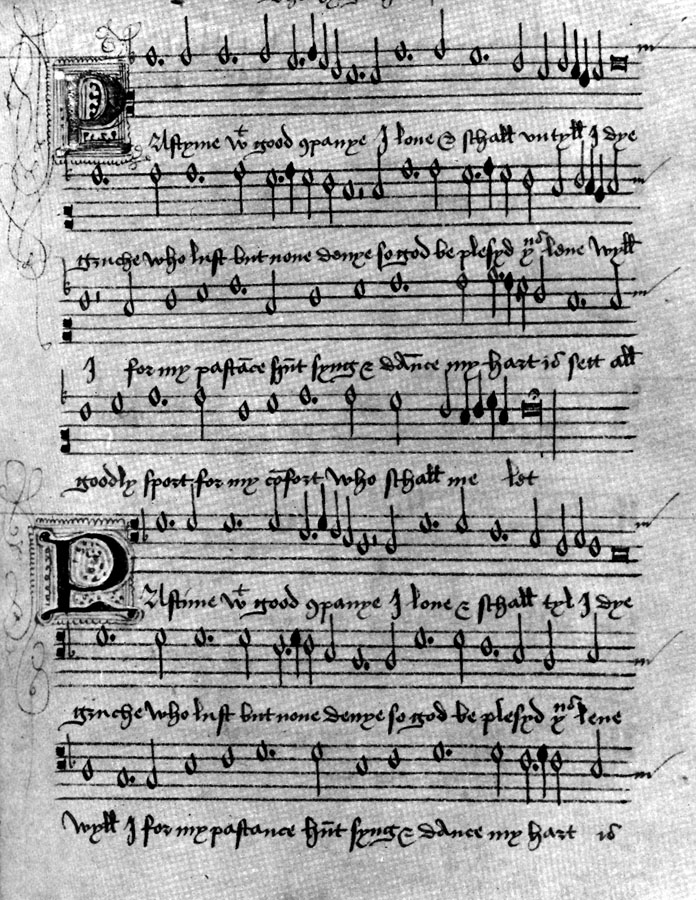 PAstyme wt good 9panye I loue & schall vntyll I dye
gruche who lust but none denye so god be plesyd yus leue wyll
I for my pastāce hūt syng & dānce my hart is sett all
goodly sport for my cōfort who schall me let
PAstime wt good 9panye I loue & schall tyl I dye
gruche who lust but none denye so god be plesyd yus leue
wyll I for my pastance hūt syng & dance my hart is